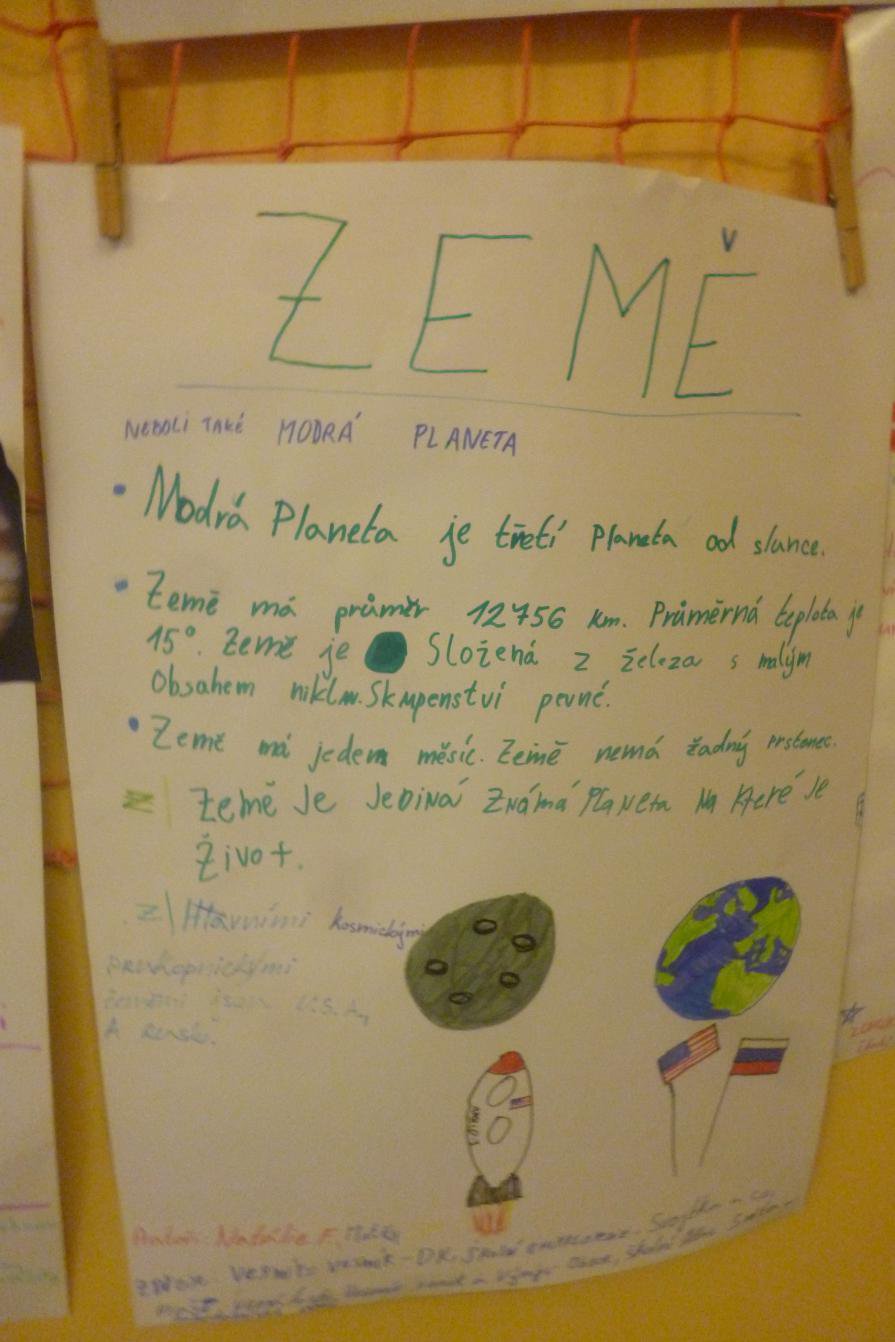 ZEMĚ
NEBOLI TAKÉ MODRÁ PLANETA
• Modrá Planeta je třetí Planeta od slunce.
• Země má průměr 12756 km. Průměrná teplota je
15°. Země je Složená z železa s malým
Obsahem niklu. Skupenství pevné.
• Země má jeden měsíc. Země nemá žadný prstenec.
Z| Země Je JeDiNá ZNáMá PlaNeta Na Které Je
Život.
Z| Hlavními kosmickými
průkopnickými
zeměmi jsou U.S.A,
A
Autoři: Natálie F,
ZDROJE: VESMÍR: VESMÍR - DK, Školní